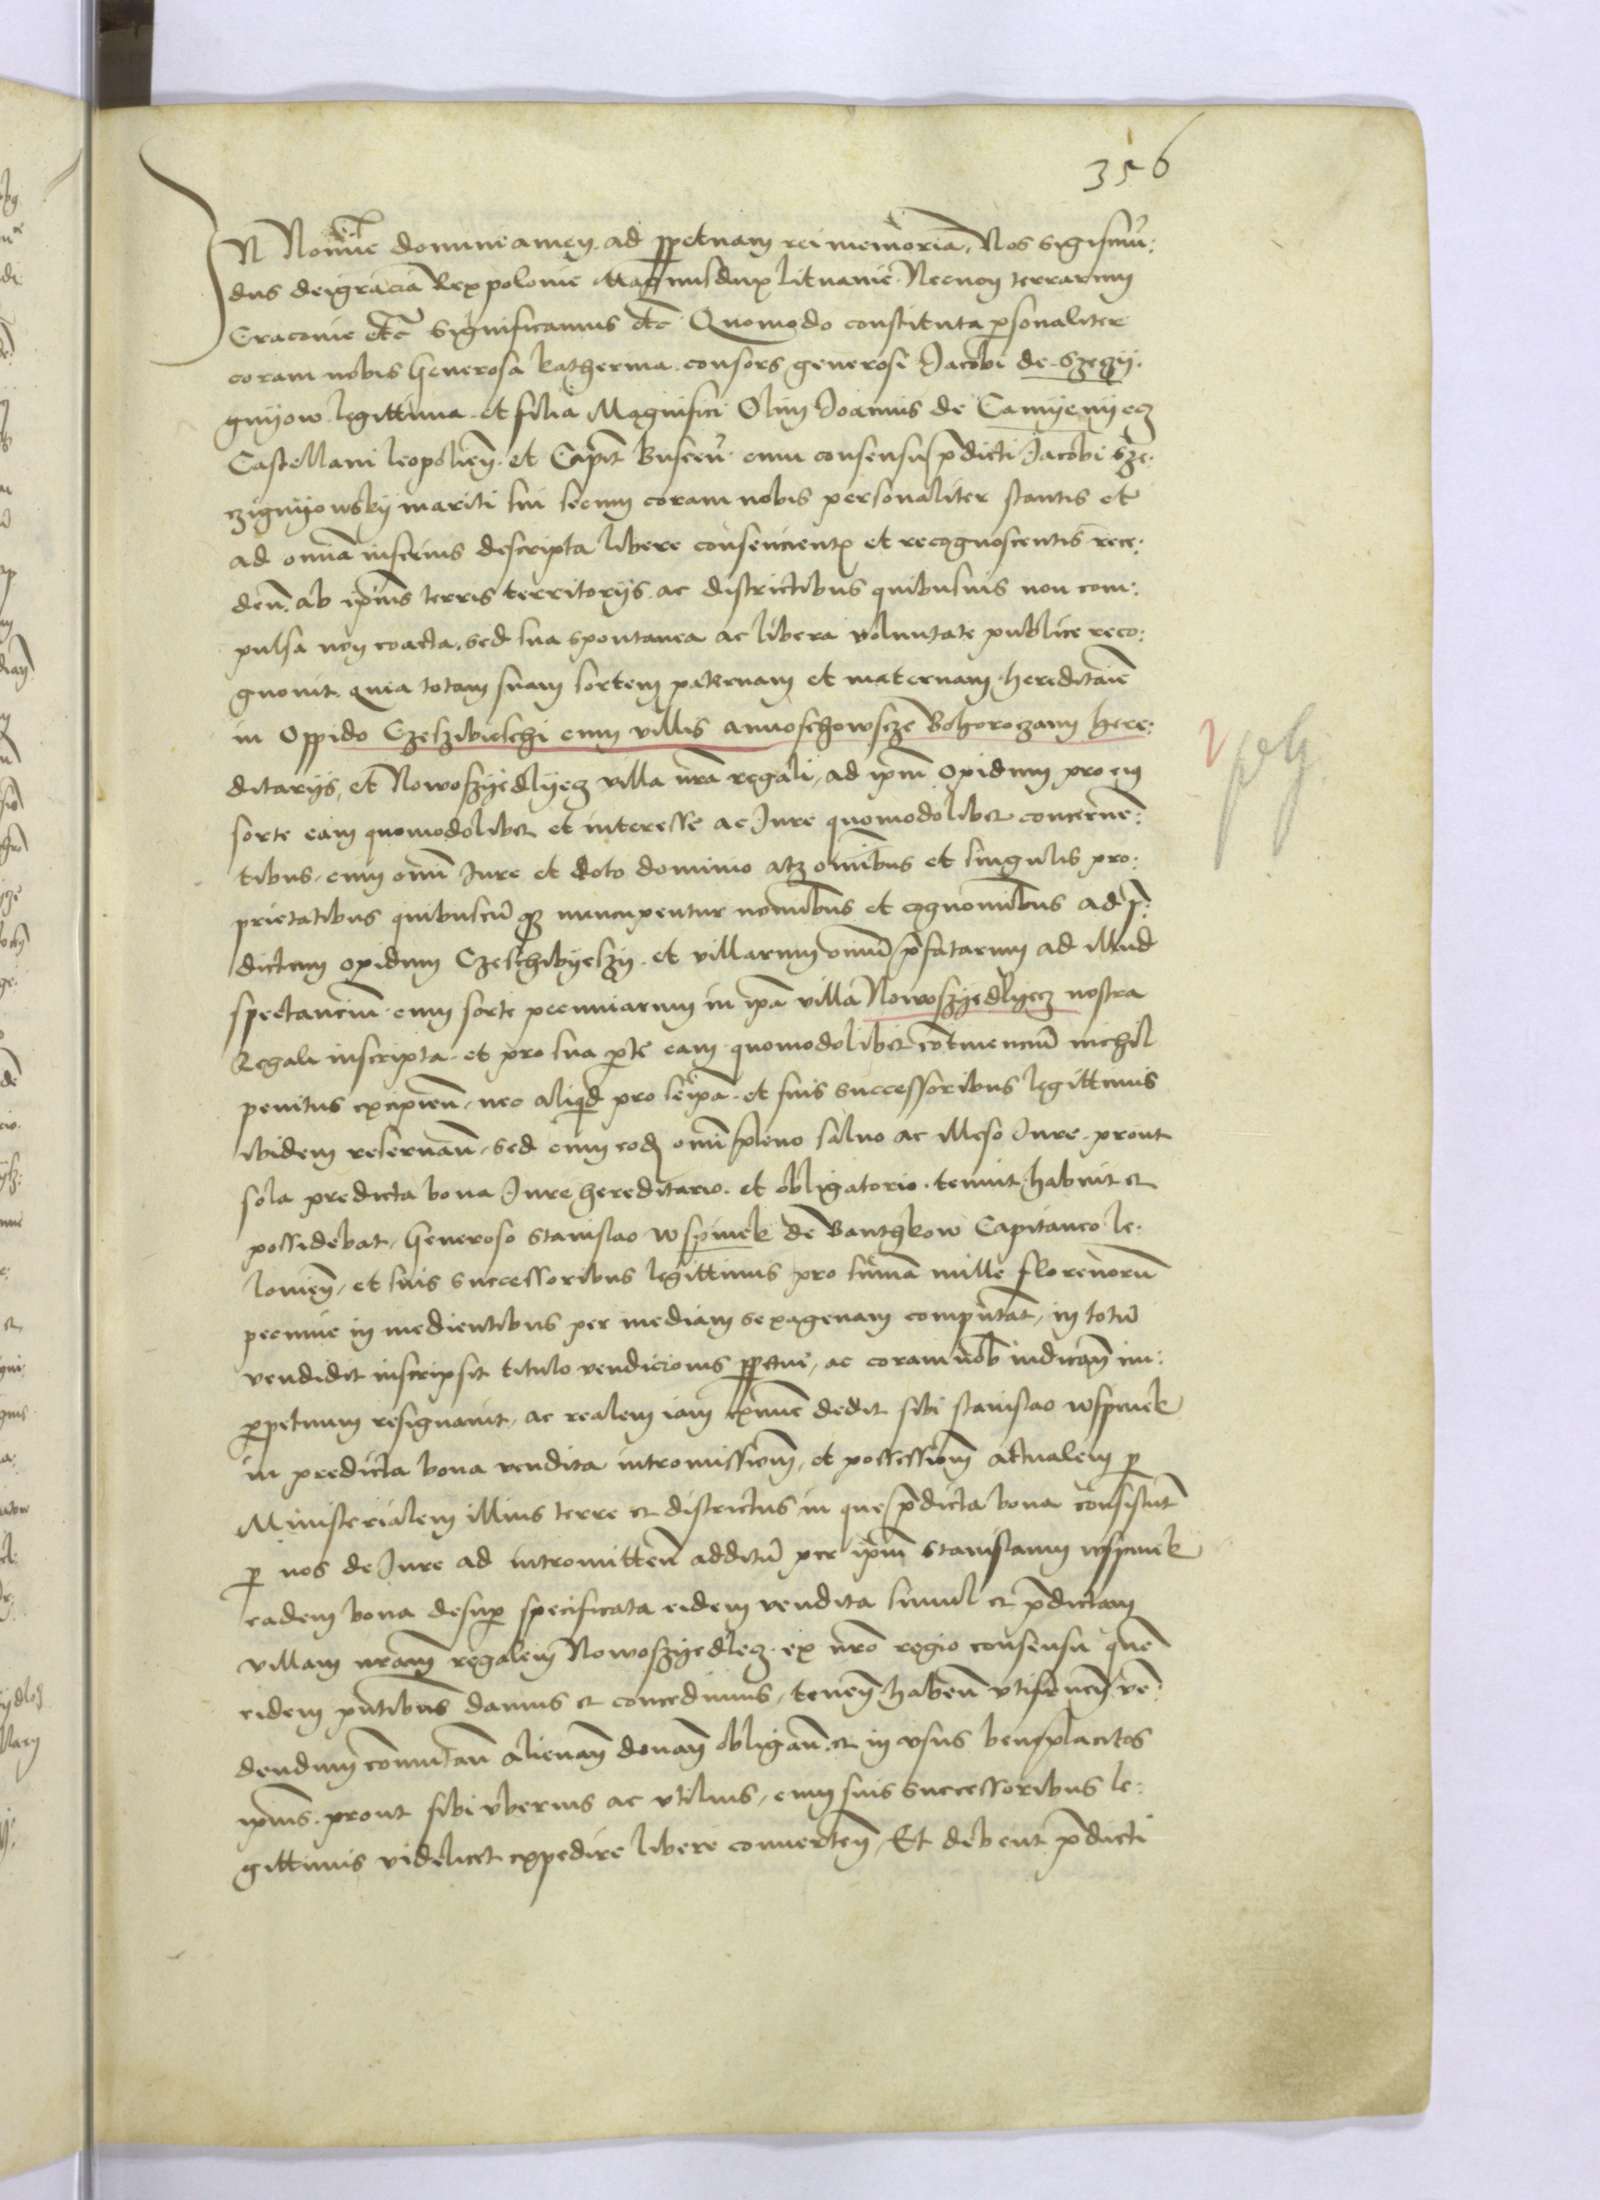 356
IN Nomīe domini amen. ad ꝑpetuam rei memoriā. Nos sigismū:
dus dei gracia Rex polonie Magnus dux lituanie Necnon terrarum
Cracovie etc̄ Significamus etc̄ Quomodo constituta ꝑsonaliter
coram nobis Generosa katherina consors generosi Jacobi de Szeczy:
gnyow legittima et filia Magnifici Olim Joannis de Camyenyecz
Castellani leopolieñ. et Capit̄ Buscen̄. cum consensu p̄dicti Jacobi Sze:
czignyowsky mariti sui secum coram nobis personaliter stantis et
ad omnia inferius descripta libere consencientꝭ et recognoscentis rece:
deñ. ab ip̄ius terris territorijs ac districtibus quibusuis non com:
pulsa non coacta. sed sua spontanea ac libera voluntate publice reco:
gnouit. quia totam suam sortem paternam et maternam hereditariē
in Oppido Czeszibieschi cum villis annoschowscze Bohoroczany here:
ditarijs, et Nowoszyedlyecz villa nr̄a regali, ad ip̄m opidum pro ea
sorte eam quomodolibet et interesse ac Jure quomodolibet concerneñ:
tibus, cum om̄i Jure et toto dominio atqꝫ om̄ibus et singulis pro:
prietatibus quibuscū qꝫ nuncupentur nominibus et cognominibus ad p̄:
dictum opidum Czeschibyeszy. et villarum omniū p̄fatarum ad illud
spectanciū. cum sorte pecuniarum in ip̄a villa Nowoszyedlyecz nostra
Regali inscripta. et pro sua ꝑte eam quomodolibet cōtinenciū nichil
penitus excipieñ, nec aliqͥd pro se ip̄a. et suis successoribus legittimis
ibidem reseruañ, sed cum eodē om̄i pleno saluo ac illeso Jure. prout
sola predicta bona Jure hereditario. et obligatorio. tenuit habuit et
possidebat, Generoso Stanislao wspinek de Bantkow Capitaneo le:
louieñ, et suis successoribus legittimis pro suma mille florenorū
pecunie in medientibus per mediam sexagenam computat̄, in totū
vendidit inscripsit titulo vendicionis ꝑpetue, ac coram nob̄ in dicañ im:
ꝑpetuum resignauit, ac realem iam exnunc dedit sibi Stanislao wspinek
in predicta bona vendita intromissionē, et possessionē actualem ꝑ
Ministerialem illius terre et districtus in que p̄dicta bona consistut̄
ꝑ nos de Jure ad intromitteñ additū per ip̄m Stanislaum wspinek
eadem bona desuꝑ specificata eidem vendita simul et p̄dictam
villam nr̄am regalem Nowoszyedlecz. ex nr̄o regio consensu quē
eidem pn̄tibus damus et concedimus, teneñ. habeñ vtifrueñ. ve:
dendum com̄utañ alienañ donañ obligañ. et in vsus beneplacitos
ip̄ius. prout sibi vberius ac vtilius, cum suis successoribus le:
gittimis videlicet expedire libere conuerteñ, Et debent p̄dicti